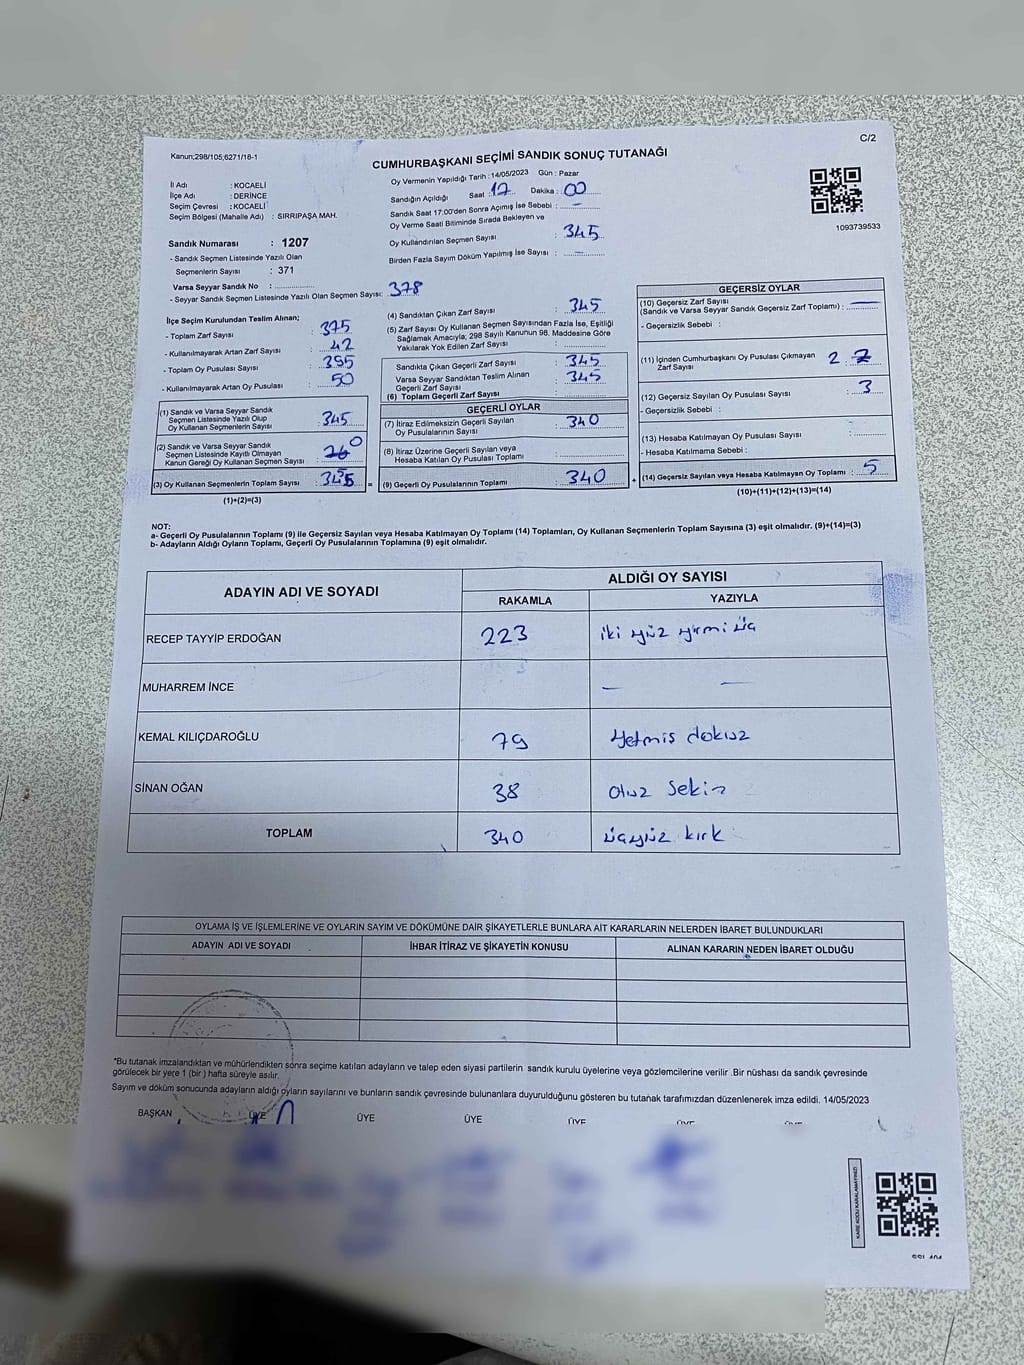 C/2
Kanun;298/105;6271/16-1
CUMHURBAŞKANI SEÇİMİ SANDIK SONUÇ TUTANAĞI
İl Adı : KOCAELİ
İlçe Adı : DERİNCE
Seçim Çevresi : KOCAELİ
Seçim Bölgesi (Mahalle Adı) : SIRRIPAŞA MAH.
Sandık Numarası : 1207
- Sandık Seçmen Listesinde Yazılı Olan
Seçmenlerin Sayısı : 371
Varsa Seyyar Sandık No :
- Seyyar Sandık Seçmen Listesinde Yazılı Olan Seçmen Sayısı: 378
Oy Vermenin Yapıldığı Tarih : 14/05/2023 Gün : Pazar
Sandığın Açıldığı Saat : 17 Dakika : 00
Sandık Saat 17:00'den Sonra Açımış İse Sebebi : —
Oy Verme Saati Bitiminde Sırada Bekleyen ve
Oy Kullandırılan Seçmen Sayısı : 345
Birden Fazla Sayım Döküm Yapılmış İse Sayısı : —
1093739533
İlçe Seçim Kurulundan Teslim Alınan;
- Toplam Zarf Sayısı : 375
- Kullanılmayarak Artan Zarf Sayısı : 42
- Toplam Oy Pusulası Sayısı : 395
- Kullanılmayarak Artan Oy Pusulası : 50
(1) Sandık ve Varsa Seyyar Sandık
Seçmen Listesinde Yazılı Olup
Oy Kullanan Seçmenlerin Sayısı : 345
(2) Sandık ve Varsa Seyyar Sandık
Seçmen Listesinde Kayıtlı Olmayan
Kanun Gereği Oy Kullanan Seçmen Sayısı : 0
(3) Oy Kullanan Seçmenlerin Toplam Sayısı : 345
(1)+(2)=(3)
(4) Sandıktan Çıkan Zarf Sayısı : 345
(5) Zarf Sayısı Oy Kullanan Seçmen Sayısından Fazla İse, Eşitliği
Sağlamak Amacıyla; 298 Sayılı Kanunun 98. Maddesine Göre
Yakılarak Yok Edilen Zarf Sayısı :
Sandıkta Çıkan Geçerli Zarf Sayısı : 345
Varsa Seyyar Sandıktan Teslim Alınan
Geçerli Zarf Sayısı : 345
(6) Toplam Geçerli Zarf Sayısı :
GEÇERLİ OYLAR
(7) İtiraz Edilmeksizin Geçerli Sayılan
Oy Pusulalarının Sayısı : 340
(8) İtiraz Üzerine Geçerli Sayılan ve
Hesaba Katılan Oy Pusulası Toplamı :
= (9) Geçerli Oy Pusulalarının Toplamı : 340
GEÇERSİZ OYLAR
(10) Geçersiz Zarf Sayısı
(Sandık ve Varsa Seyyar Sandık Geçersiz Zarf Toplamı) : —
- Geçersizlik Sebebi :
(11) İçinden Cumhurbaşkanı Oy Pusulası Çıkmayan 2 2
Zarf Sayısı
(12) Geçersiz Sayılan Oy Pusulası Sayısı : 3
- Geçersizlik Sebebi :
(13) Hesaba Katılmayan Oy Pusulası Sayısı :
- Hesaba Katılmama Sebebi :
+ (14) Geçersiz Sayılan veya Hesaba Katılmayan Oy Toplamı : 5
(10)+(11)+(12)+(13)=(14)
NOT:
a- Geçerli Oy Pusulalarının Toplamı (9) ile Geçersiz Sayılan veya Hesaba Katılmayan Oy Toplamı (14) Toplamları, Oy Kullanan Seçmenlerin Toplam Sayısına (3) eşit olmalıdır. (9)+(14)=(3)
b- Adayların Aldığı Oyların Toplamı, Geçerli Oy Pusulalarının Toplamına (9) eşit olmalıdır.
ADAYIN ADI VE SOYADI ALDIĞI OY SAYISI
RAKAMLA YAZIYLA
RECEP TAYYİP ERDOĞAN 223 iki yüz yirmi üç
MUHARREM İNCE — —
KEMAL KILIÇDAROĞLU 79 Yetmiş dokuz
SİNAN OĞAN 38 Otuz Sekiz
TOPLAM 340 üçyüz kırk
OYLAMA İŞ VE İŞLEMLERİNE VE OYLARIN SAYIM VE DÖKÜMÜNE DAİR ŞİKAYETLERLE BUNLARA AİT KARARLARIN NELERDEN İBARET BULUNDUKLARI
ADAYIN ADI VE SOYADI İHBAR İTİRAZ VE ŞİKAYETİN KONUSU ALINAN KARARIN NEDEN İBARET OLDUĞU
*Bu tutanak imzalandıktan ve mühürlendikten sonra seçime katılan adayların ve talep eden siyasi partilerin sandık kurulu üyelerine veya gözlemcilerine verilir .Bir nüshası da sandık çevresinde
görülecek bir yere 1 (bir ) hafta süreyle asılır.
Sayım ve döküm sonucunda adayların aldığı oyların sayılarını ve bunların sandık çevresinde bulunanlara duyurulduğunu gösteren bu tutanak tarafımızdan düzenlenerek imza edildi. 14/05/2023
BAŞKAN ÜYE ÜYE ÜYE ÜYE ÜYE ÜYE
KARE KODU KARALAMAYINIZ!